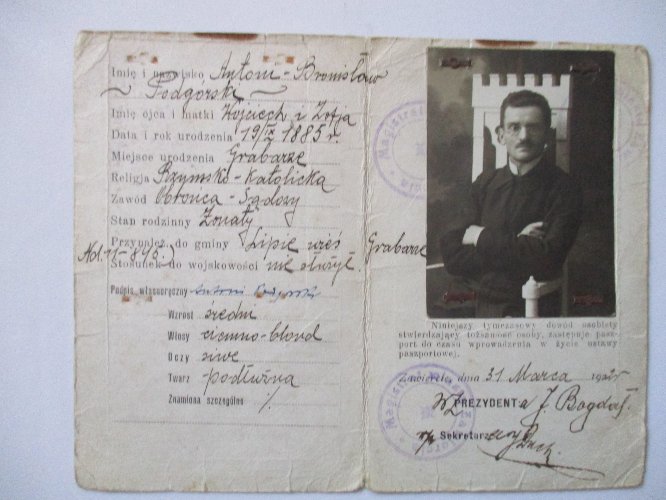 Imię i nazwisko Antoni-Bronisław
Podgórski
Imię ojca i matki Wojciech i Zofja
Data i rok urodzenia 19/IX 1885 r.
Miejsce urodzenia Grabarze
Religja Rzymsko-Katolicka
Zawód Obrońca-Sądowy
Stan rodzinny Żonaty
Przynależ. do gminy Lipie wieś Grabarze
Stosunek do wojskowości nie służył
Podpis własnoręczny Antoni Podgórski
Wzrost średni
Włosy ciemno-blond
Oczy siwe
Twarz podłużna
Znamiona szczególne
Niniejszy tymczasowy dowód osobisty
stwierdzający tożsamość osoby, zastępuje pasz-
port do czasu wprowadzenia w życie ustawy
paszportowej.
Zawiercie, dnia 31 Marca 192
PREZYDENTa J. Bogdał
Sekretarz